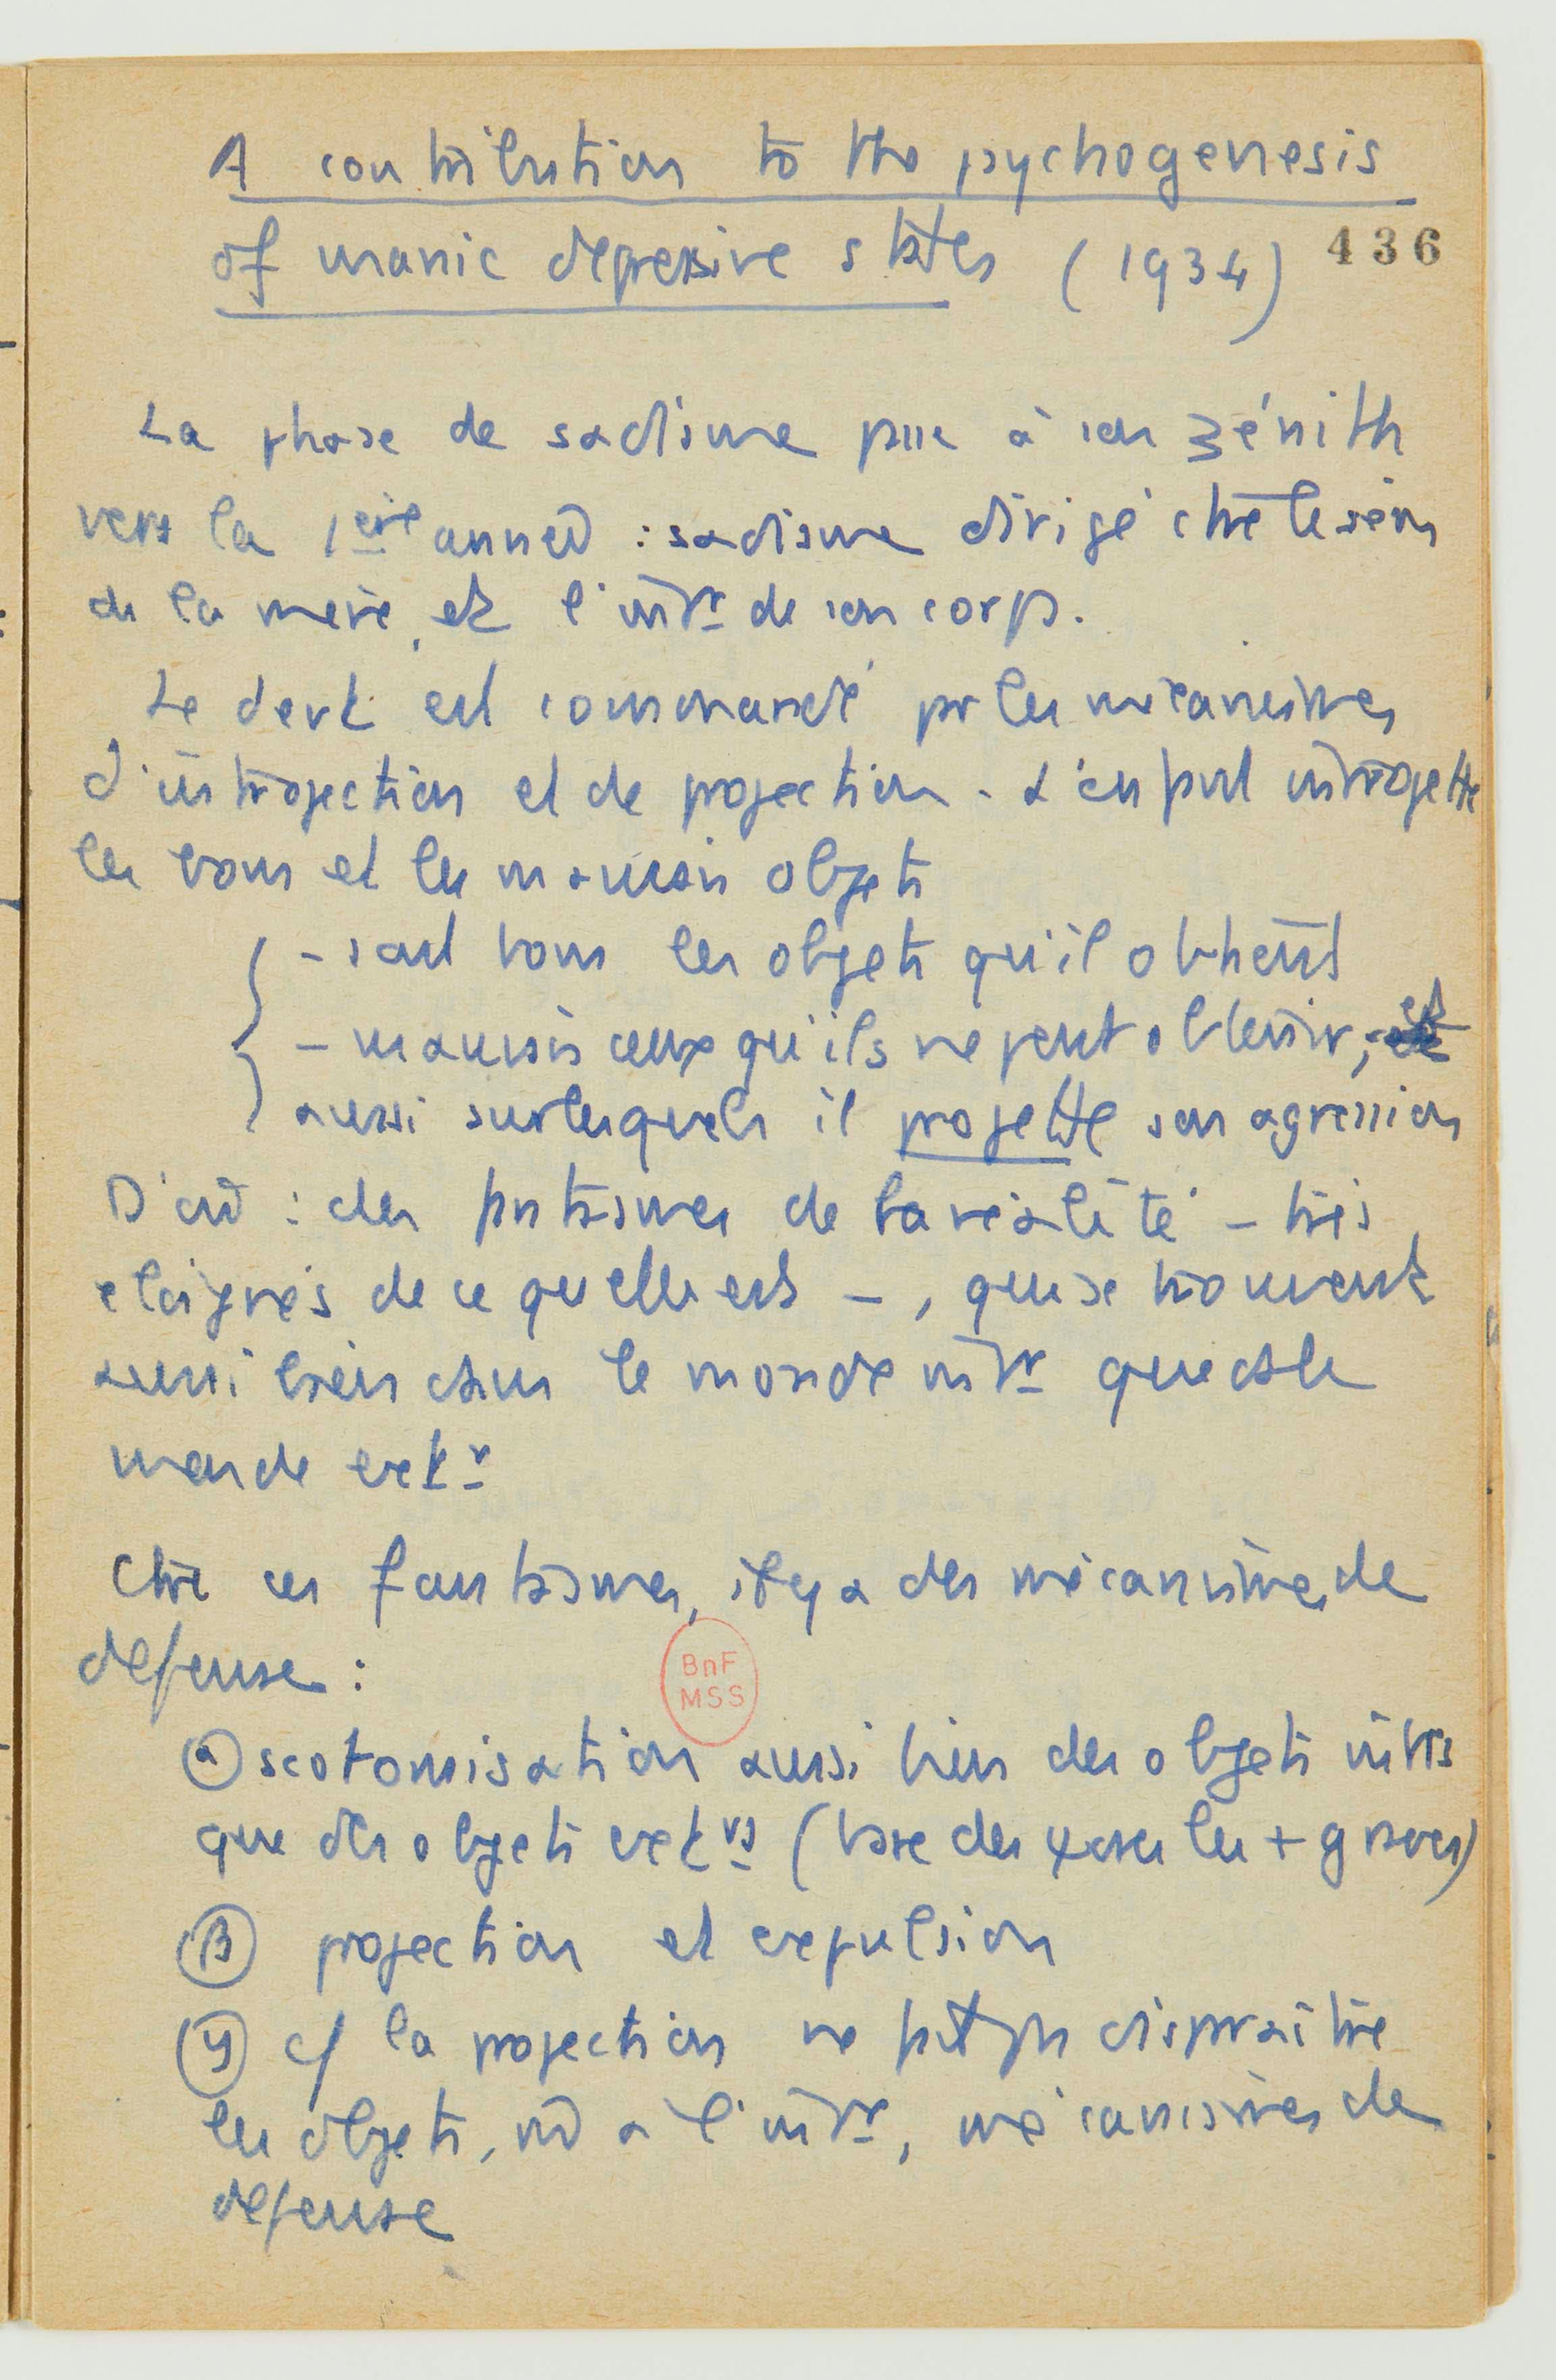 A contribution to the psychogenesis
of manic depressive states (1934)
436
La phase de sadisme passe à son zénith
vers la 1ère année : sadisme dirigé ctre le sein
de la mère, et l'intr de son corps.
Le devt est commandé par les mécanismes
d'introjection et de projection. L'enfant introjette
les bons et les mauvais objets
- sont bons les objets qu'il obtient
- mauvais ceux qu'ils ne peut obtenir,
aussi sur lesquels il projette son agression
D'où : des fantasmes de la réalité - très
éloignés de ce qu'elle est -, qui se trouvent
aussi bien dans le monde intr que ds le
monde extr
Ctre ces fantasmes, il y a des mécanismes de
défense :
α scotomisation aussi bien des objets intrs
que des objets extrs (base des ψoses les + graves)
β projection et expulsion
γ cf la projection ne fait pas disparaître
les objets, né à l'intr, mécanismes de
défense
BnF
MSS